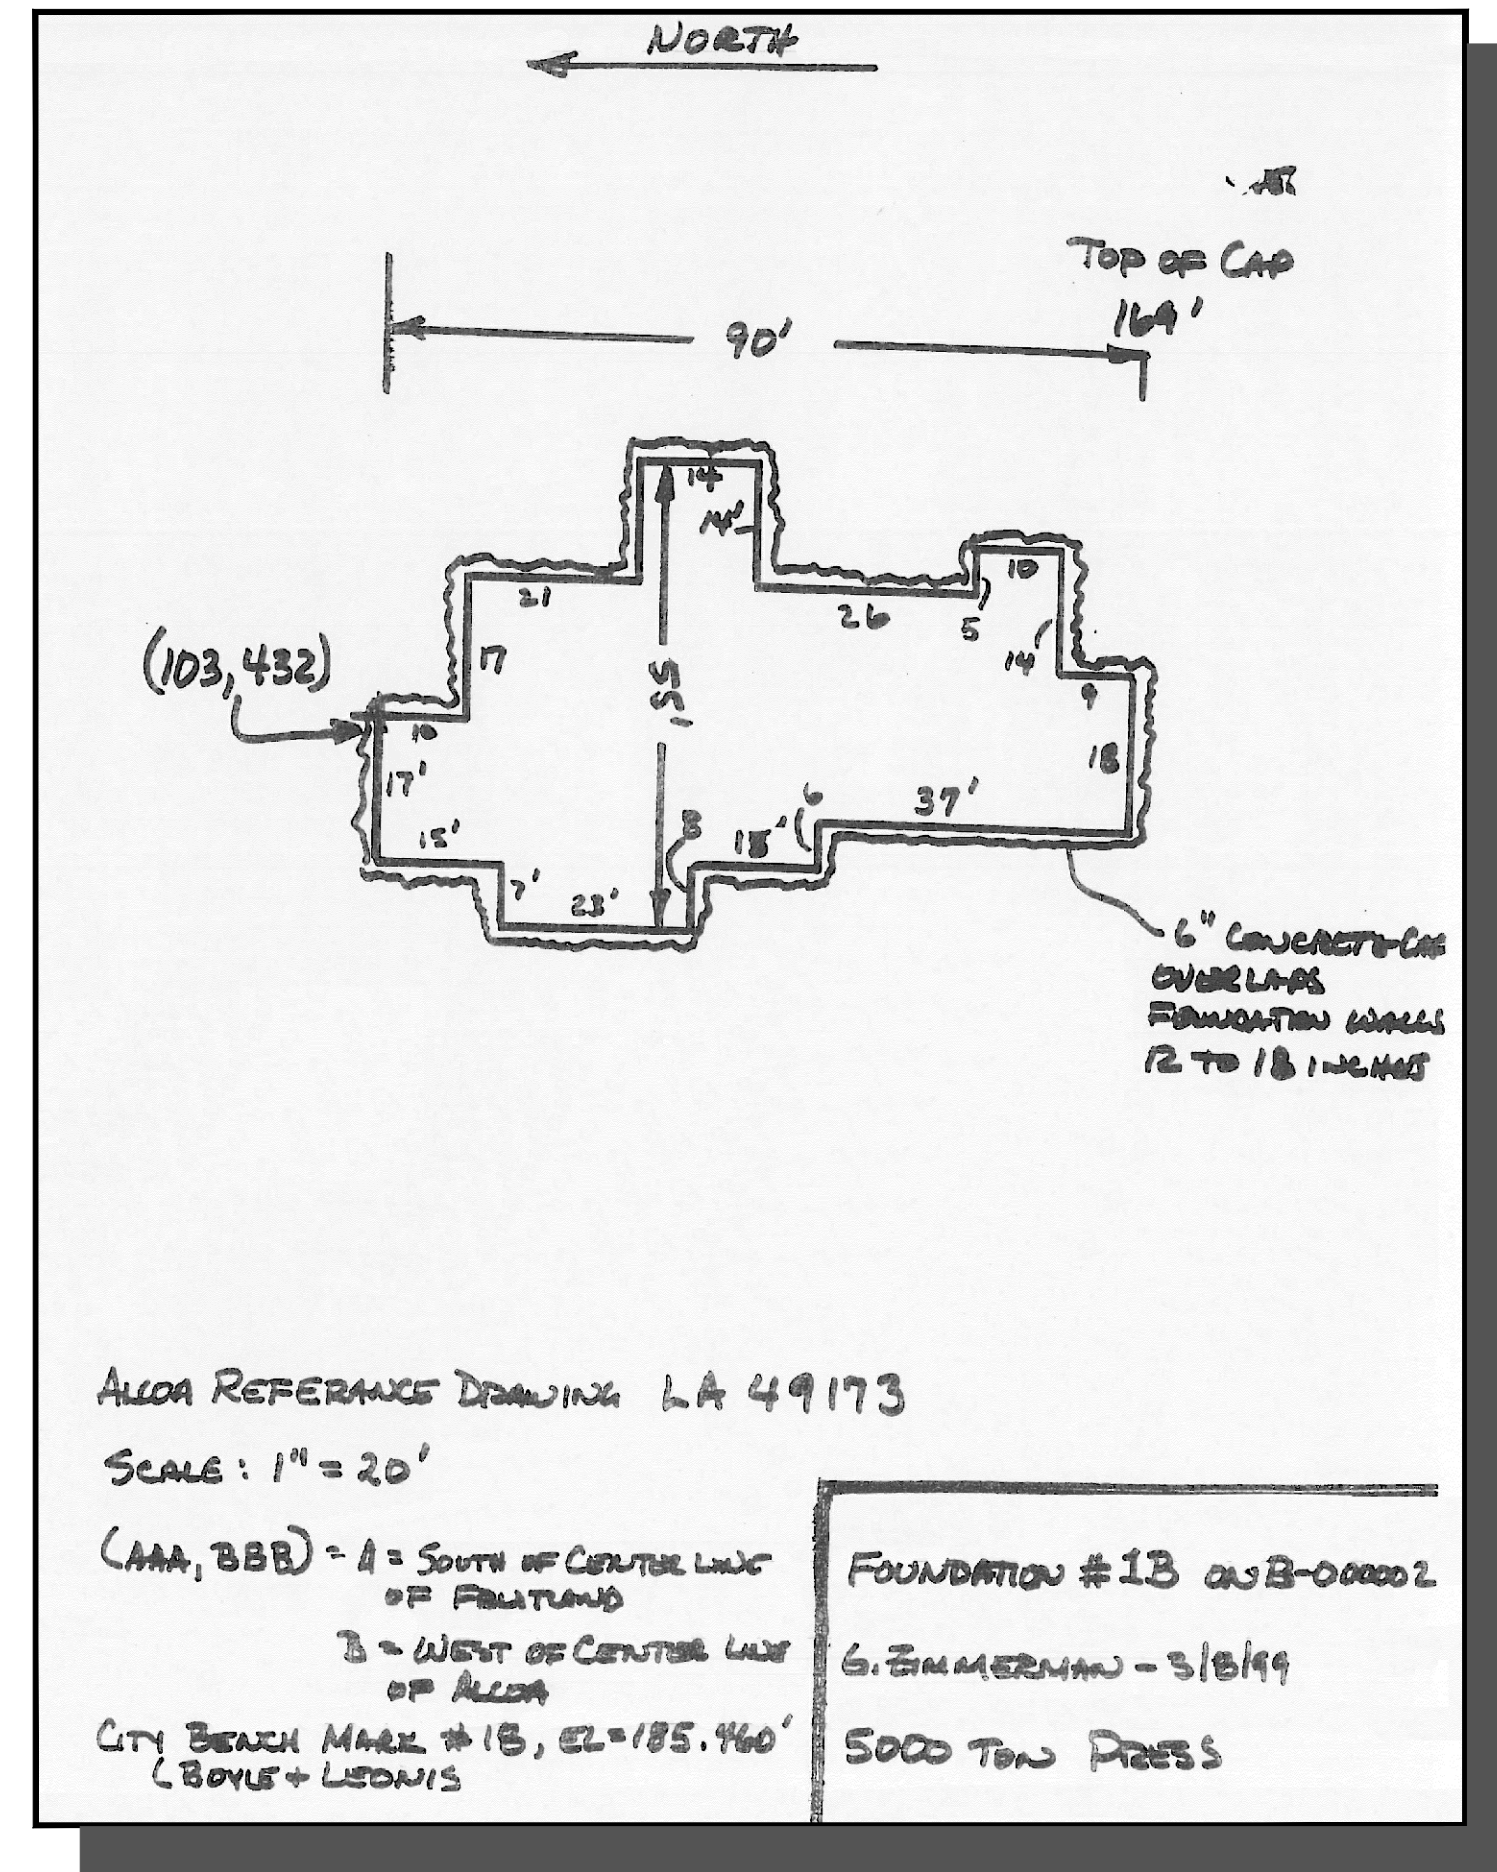 NORTH
TOP OF CAP
169'
90'
14
14'
10
21
26
5
14'
9
(103,432)
17
55'
10
17'
18
37'
6
15'
8
15'
7'
23'
6" CONCRETE CAP
OVERLAPS
FOUNDATION WALLS
12 TO 18 INCHES
ALCOA REFERANCE DRAWING LA 49173
SCALE: 1" = 20'
(AAA, BBB) - A = SOUTH OF CENTER LINE
OF FRUITLAND
B = WEST OF CENTER LINE
OF ALCOA
CITY BENCH MARK #18, EL=185.960'
(BOYLE + LEONIS
FOUNDATION #1B ON B-000002
G. ZIMMERMAN - 3/8/99
5000 TON PRESS